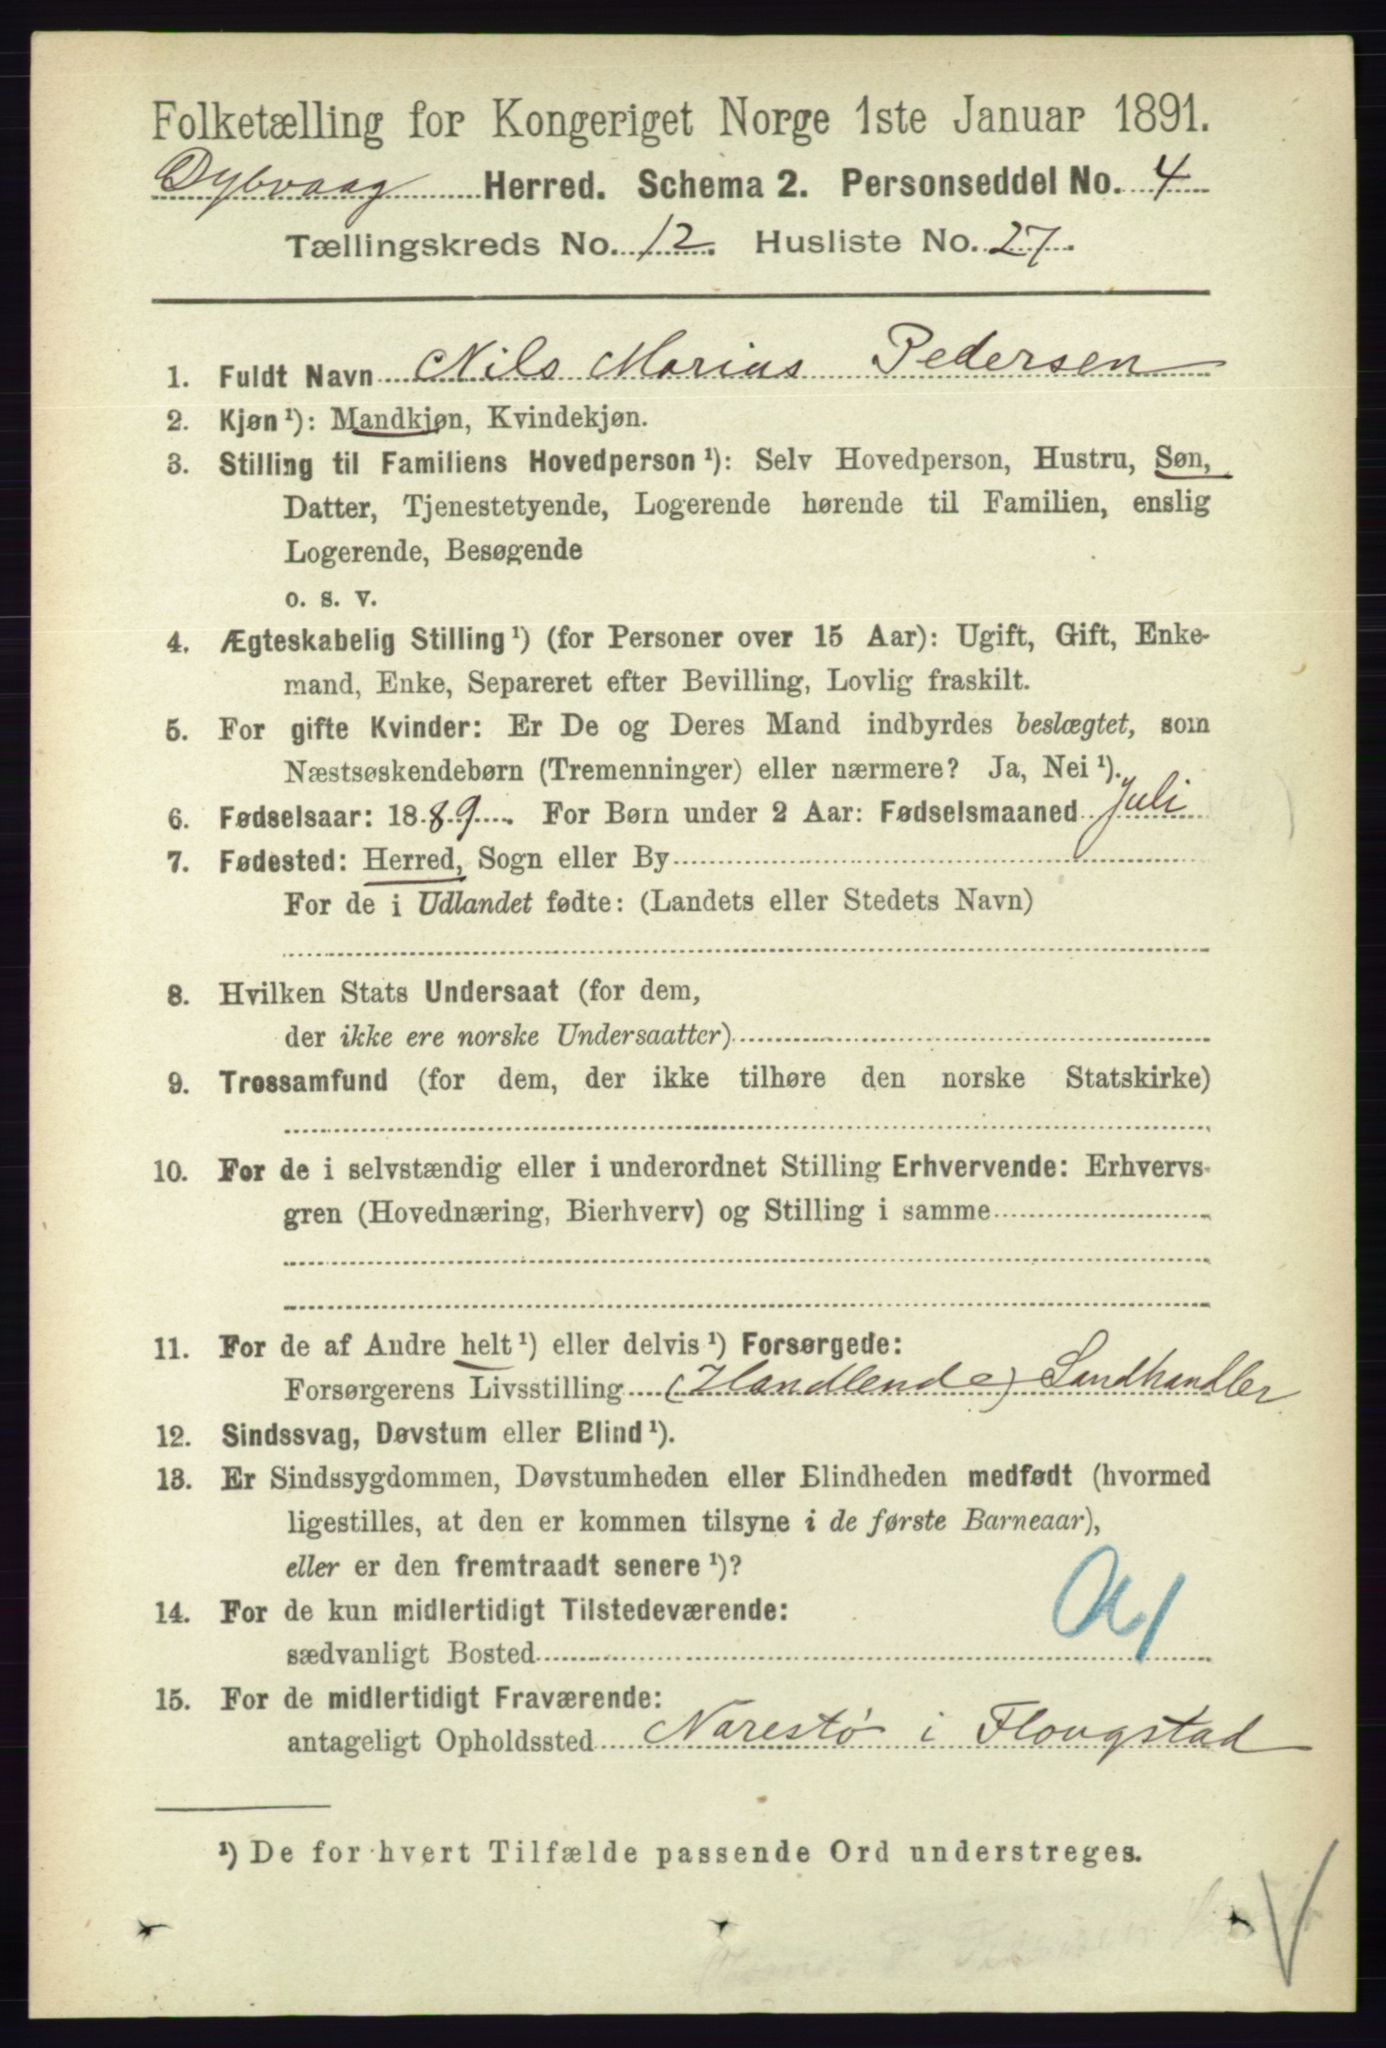 Folketælling for Kongeriget Norge 1ste Januar 1891.
Dybvaag Herred. Schema 2. Personseddel No. 4
Tællingskreds No. 12. Husliste No. 27.
1. Fuldt Navn Nils Marius Pedersen
2. Kjøn ¹): Mandkjøn, Kvindekjøn.
3. Stilling til Familiens Hovedperson ¹): Selv Hovedperson, Hustru, Søn,
Datter, Tjenestetyende, Logerende hørende til Familien, enslig
Logerende, Besøgende
o. s. v.
4. Ægteskabelig Stilling ¹) (for Personer over 15 Aar): Ugift, Gift, Enke-
mand, Enke, Separeret efter Bevilling, Lovlig fraskilt.
5. For gifte Kvinder: Er De og Deres Mand indbyrdes beslægtet, som
Næstsøskendebørn (Tremenninger) eller nærmere? Ja, Nei ¹).
6. Fødselsaar: 1889. For Børn under 2 Aar: Fødselsmaaned Juli
7. Fødested: Herred, Sogn eller By
For de i Udlandet fødte: (Landets eller Stedets Navn)
8. Hvilken Stats Undersaat (for dem,
der ikke ere norske Undersaatter)
9. Trossamfund (for dem, der ikke tilhøre den norske Statskirke)
10. For de i selvstændig eller i underordnet Stilling Erhvervende: Erhvervs-
gren (Hovednæring, Bierhverv) og Stilling i samme
11. For de af Andre helt ¹) eller delvis ¹) Forsørgede:
Forsørgerens Livsstilling (Handlende) Landhandler
12. Sindssvag, Døvstum eller Blind ¹).
13. Er Sindssygdommen, Døvstumheden eller Blindheden medfødt (hvormed
ligestilles, at den er kommen tilsyne i de første Barneaar),
eller er den fremtraadt senere ¹)?
14. For de kun midlertidigt Tilstedeværende:
sædvanligt Bosted
15. For de midlertidigt Fraværende:
antageligt Opholdssted Narestø i Flougstad
¹) De for hvert Tilfælde passende Ord understreges.